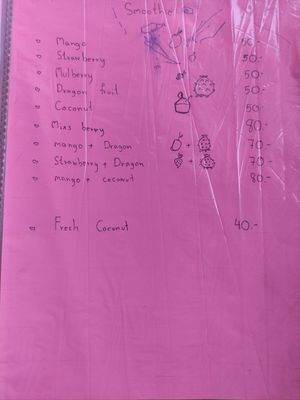 Smoothie
Mango 50.-
Strawberry 50.-
Mulberry 50.-
Dragon fruit 50.-
Coconut 50.-
Mixs berry 80.-
mango + Dragon 70.-
Strawberry + Dragon 70.-
mango + coconut 80.-
Fresh Coconut 40.-